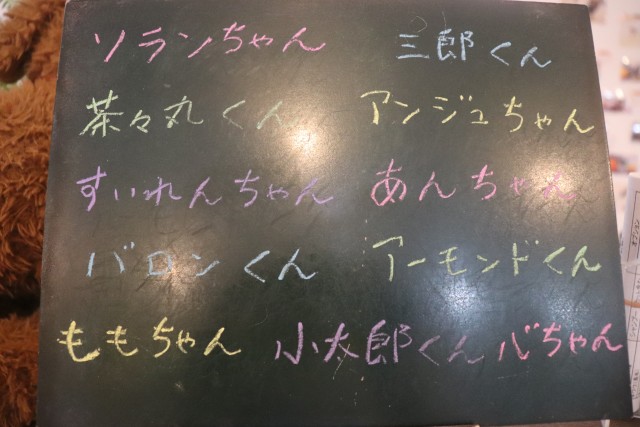 ソランちゃん 三郎くん
茶々丸くん アンジュちゃん
すいれんちゃん あんちゃん
バロンくん アーモンドくん
ももちゃん 小太郎くん 心ちゃん